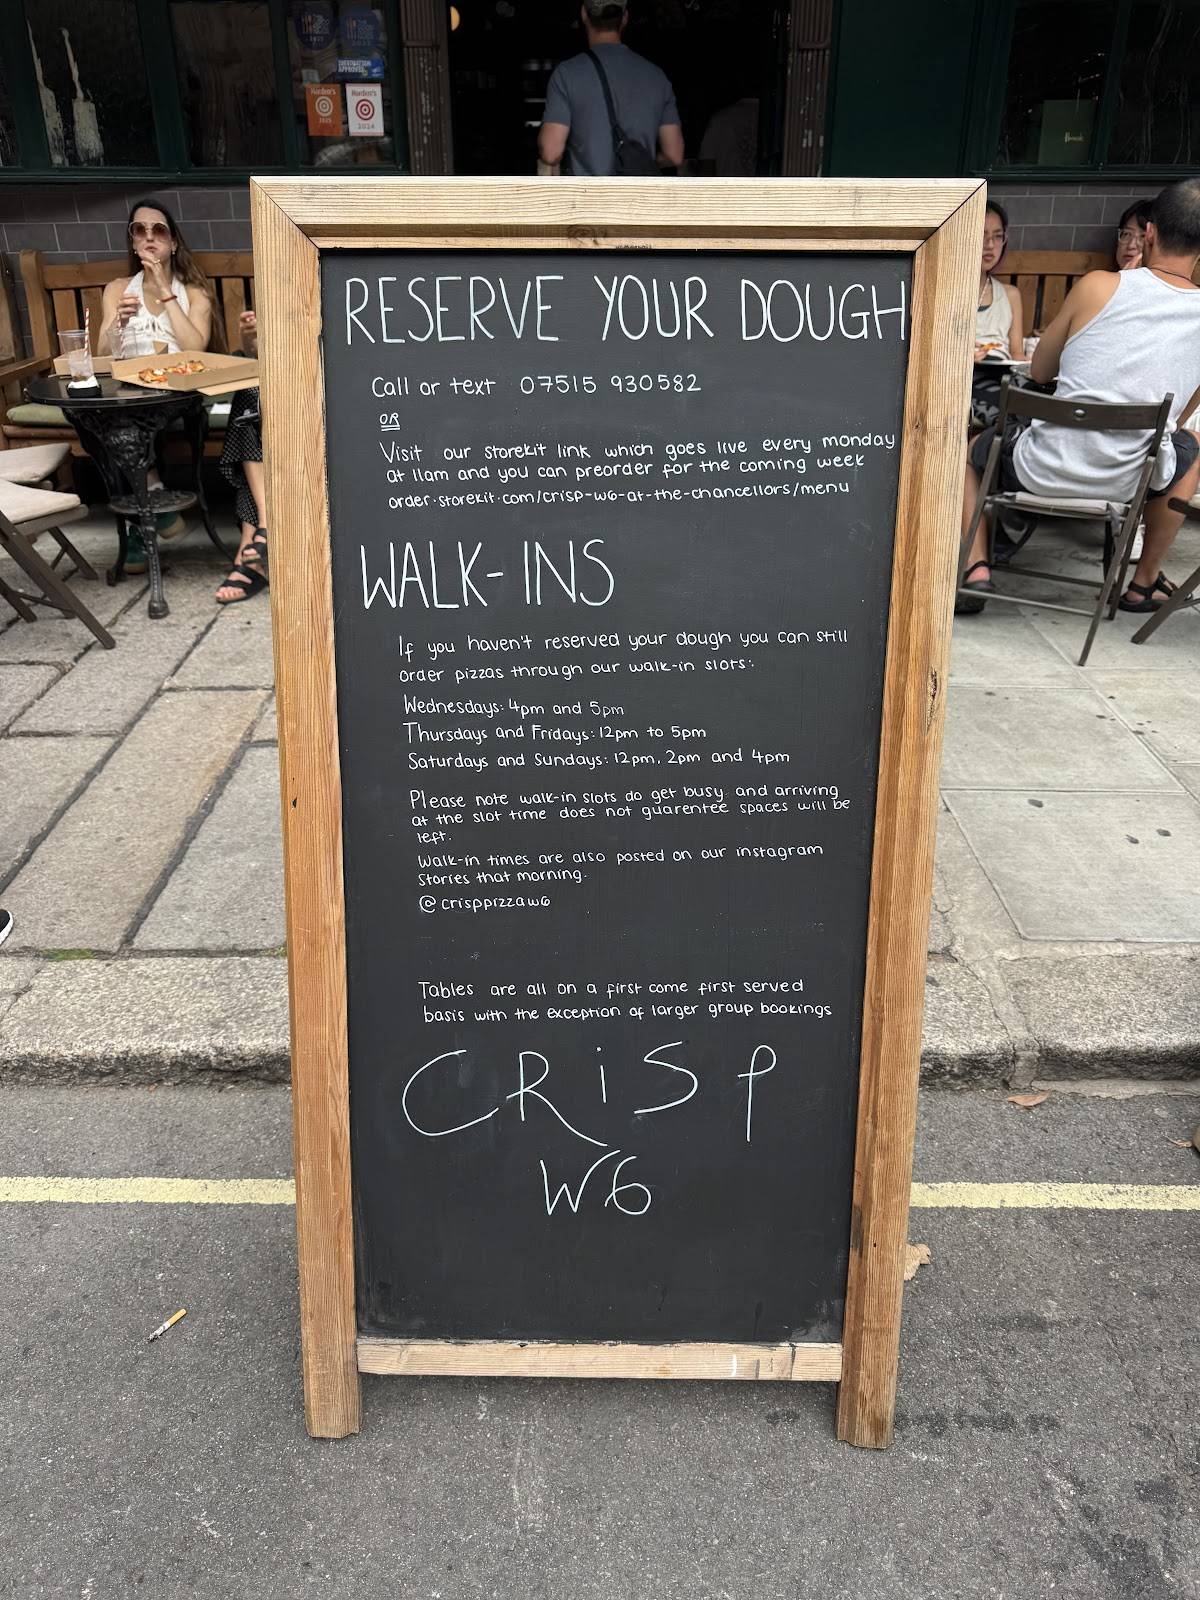 Harden's
2025
Harden's
2024
RESERVE YOUR DOUGH
Call or text 07515 930582
OR
Visit our storekit link which goes live every monday
at 11am and you can preorder for the coming week
order.storekit.com/crisp-w6-at-the-chancellors/menu
WALK-INS
If you haven't reserved your dough you can still
order pizzas through our walk-in slots:
Wednesdays: 4pm and 5pm
Thursdays and Fridays: 12pm to 5pm
Saturdays and Sundays: 12pm, 2pm and 4pm
Please note walk-in slots do get busy and arriving
at the slot time does not guarentee spaces will be
left.
Walk-in times are also posted on our instagram
stories that morning.
@crisppizzaw6
Tables are all on a first come first served
basis with the exception of larger group bookings
CRiSP
W6